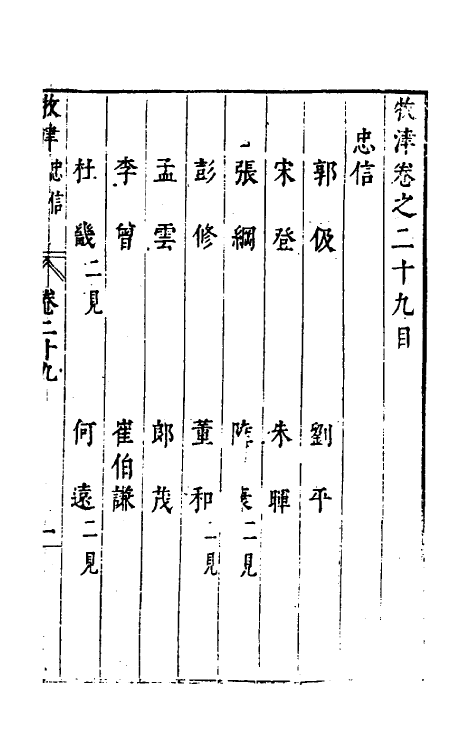 牧津卷之二十九目
忠信
郭伋　劉平
宋登　朱暉
張綱　陸　二見
彭修　董和二見
孟雲　郎茂
李曾　崔伯謙
杜畿二見　何遠二見
牧津　忠信　卷二十九　一